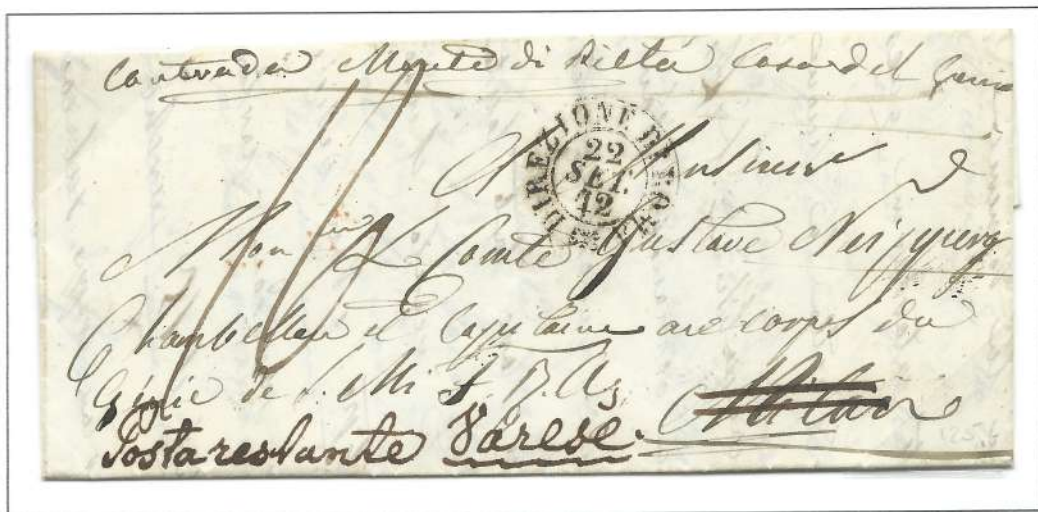 Contrada Monte di Pietà Casa del Genio
DIREZIONE DI
22
SET.
42
A Monsieur
Monsieur Le Comte Gustave Neipperg
Chambellan et Capitaine au corps du
Génie de S. M. I. R. A.
Milan
Posta restante Varese.